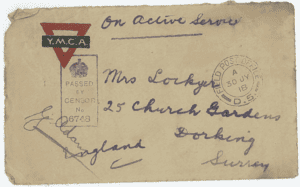 On Active Service
Y.M.C.A
PASSED
BY
CENSOR
No
6749
FIELD POST OFFICE
A
30 JY
18
D.5
Mrs Lockyer
25 Church Gardens
Dorking
England
Surrey